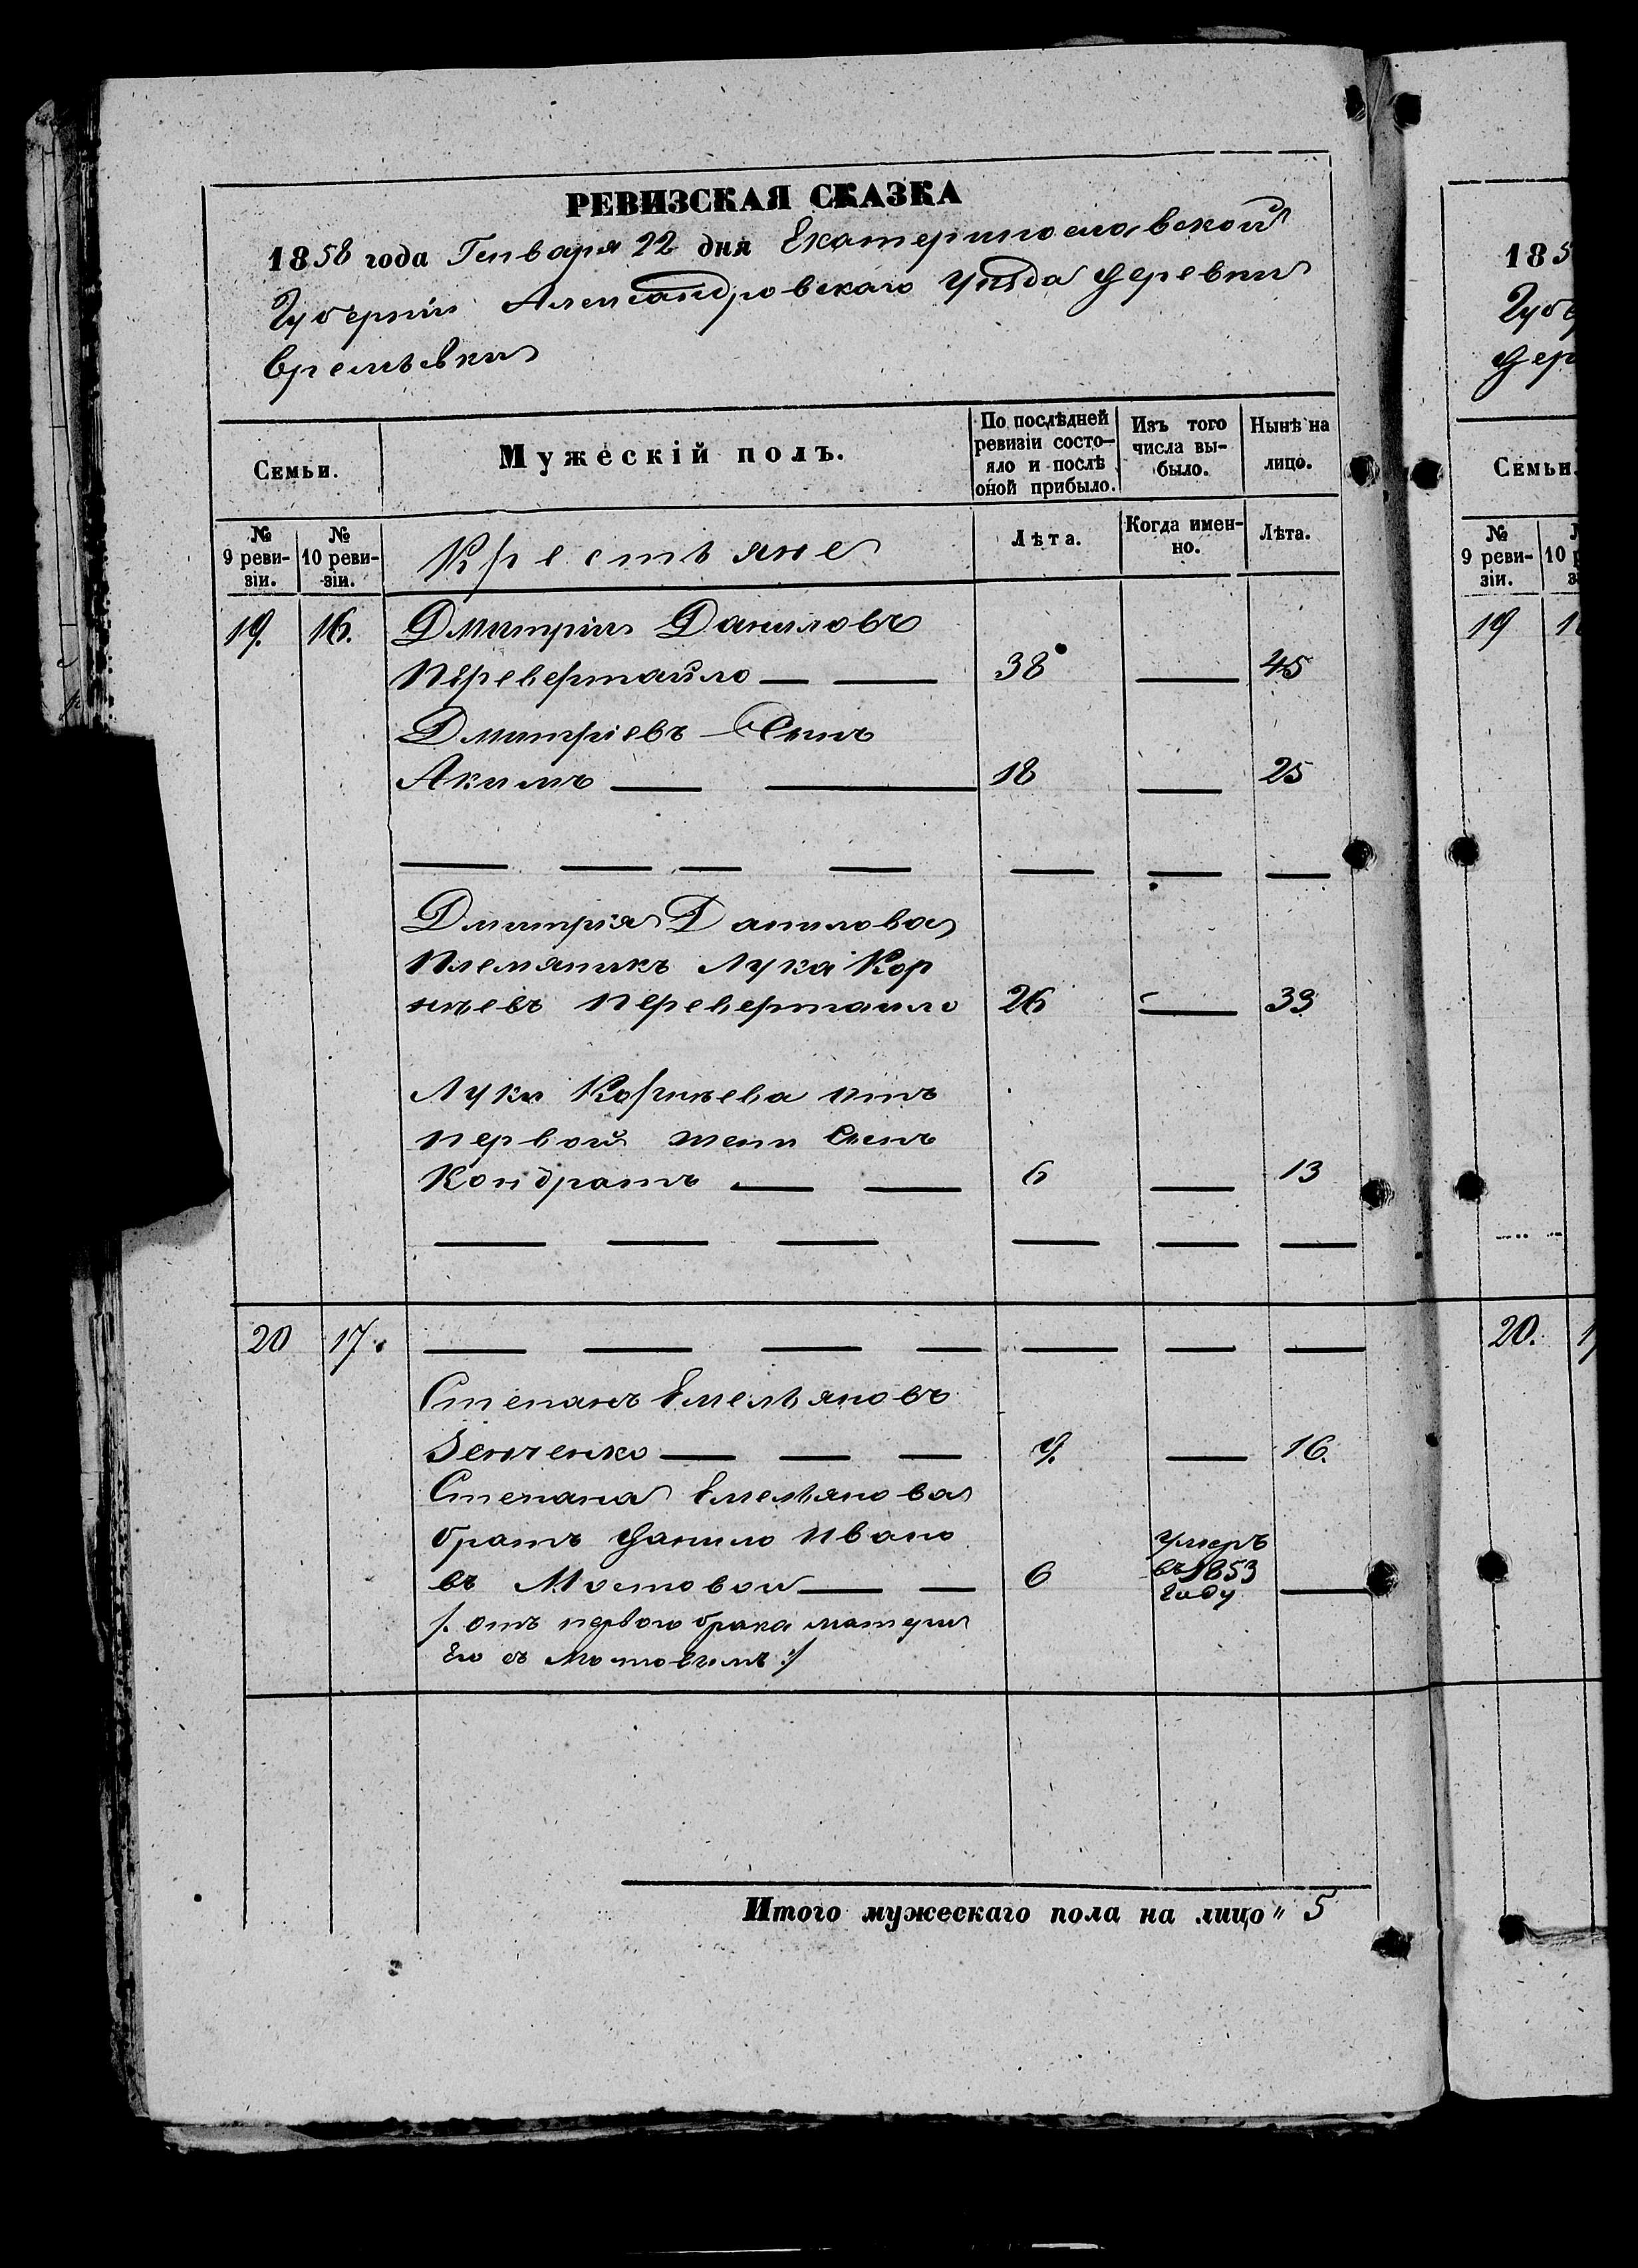 РЕВИЗСКАЯ СКАЗКА
1858 года Генваря 22 дня Екатеринославской
Губерніи Александровскаго уѣзда деревни
Времьевки
Семьи.
Мужескій полъ.
По послѣдней ревизіи состояло и послѣ оной прибыло.
Изъ того числа выбыло.
Нынѣ на лицо.
№ 9 ревизіи.
№ 10 ревизіи.
Крестьяне
Лѣта.
Когда именно.
Лѣта.
19. 16. Дмитрій Даниловъ
Перевертайло — — 38 — 45
Дмитріевъ Сынъ
Акимъ — — 18 — 25
— — — — — — —
Дмитрія Данилова
Племяникъ Лука Кор
нѣевъ Перевертайло 26 — 33
Луки Корнѣева отъ
первой жены Сынъ
Кондратъ — — 6 — 13
— — — — — —
20 17. — — — — — — —
Степанъ Емельяновъ
Зенченко — — — 9. — 16.
Степана Емельянова
братъ Данило Ивано
въ Мостовой — — 6 Умеръ въ 1853 году —
/: отъ первого брака матери
Его съ Мостовымъ :/
Итого мужескаго пола на лицо " 5
185
Губе
дер
Семьи.
№ 9 ревизіи.
10
19
20.